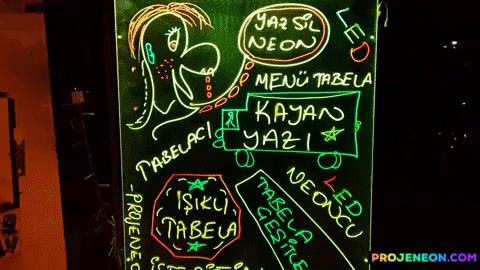 YAZ SİL
NEON
LED
MENÜ TABELA
KAYAN
YAZI
TABELACI
LED
NEONCU
IŞIKLI
TABELA
TABELA
PROJENEON.COM